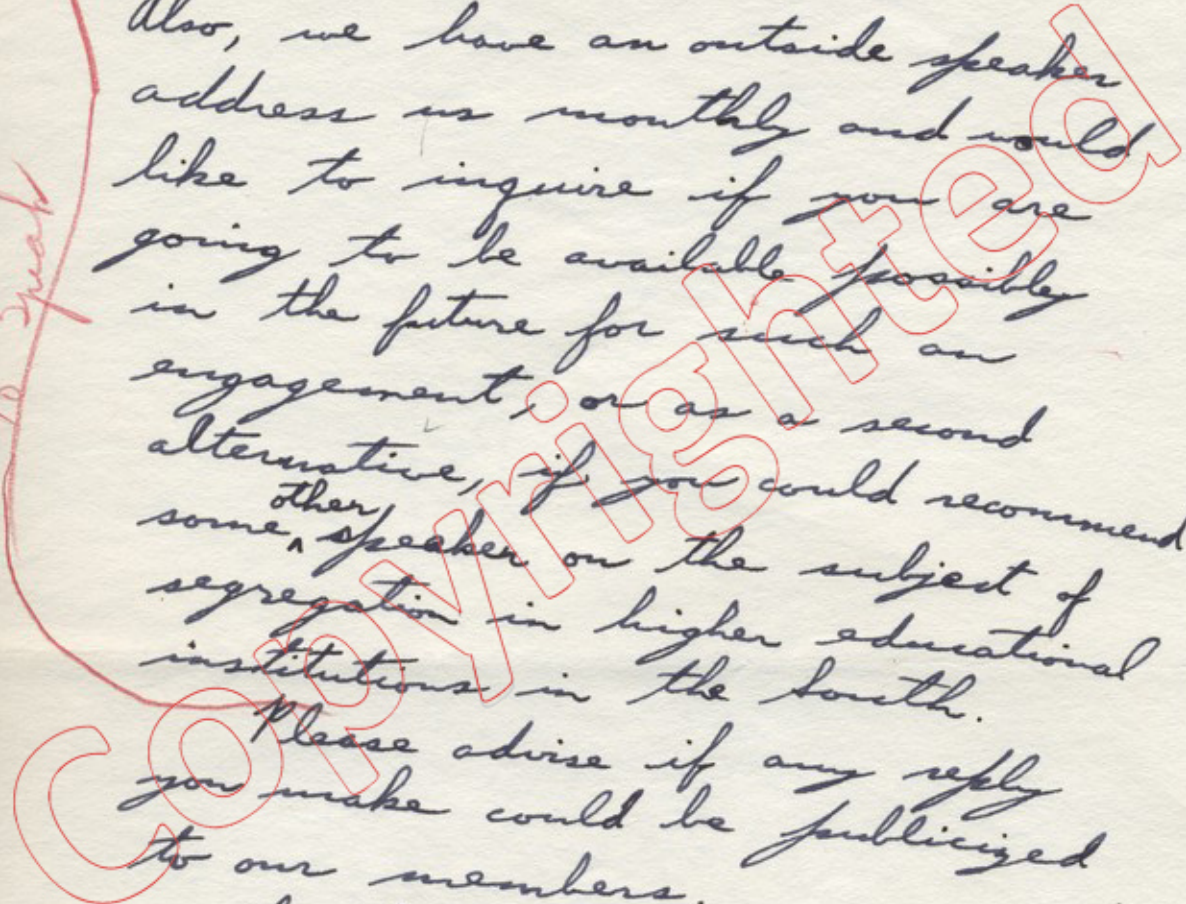 Also, we have an outside speaker
address us monthly and would
like to inquire if you are
going to be available possibly
in the future for such an
engagement, or as a second
alternative, if you could recommend
some other speaker on the subject of
segregation in higher educational
institutions in the South.
Please advise if any reply
you make could be publicized
to our members.
to speak
Copyrighted